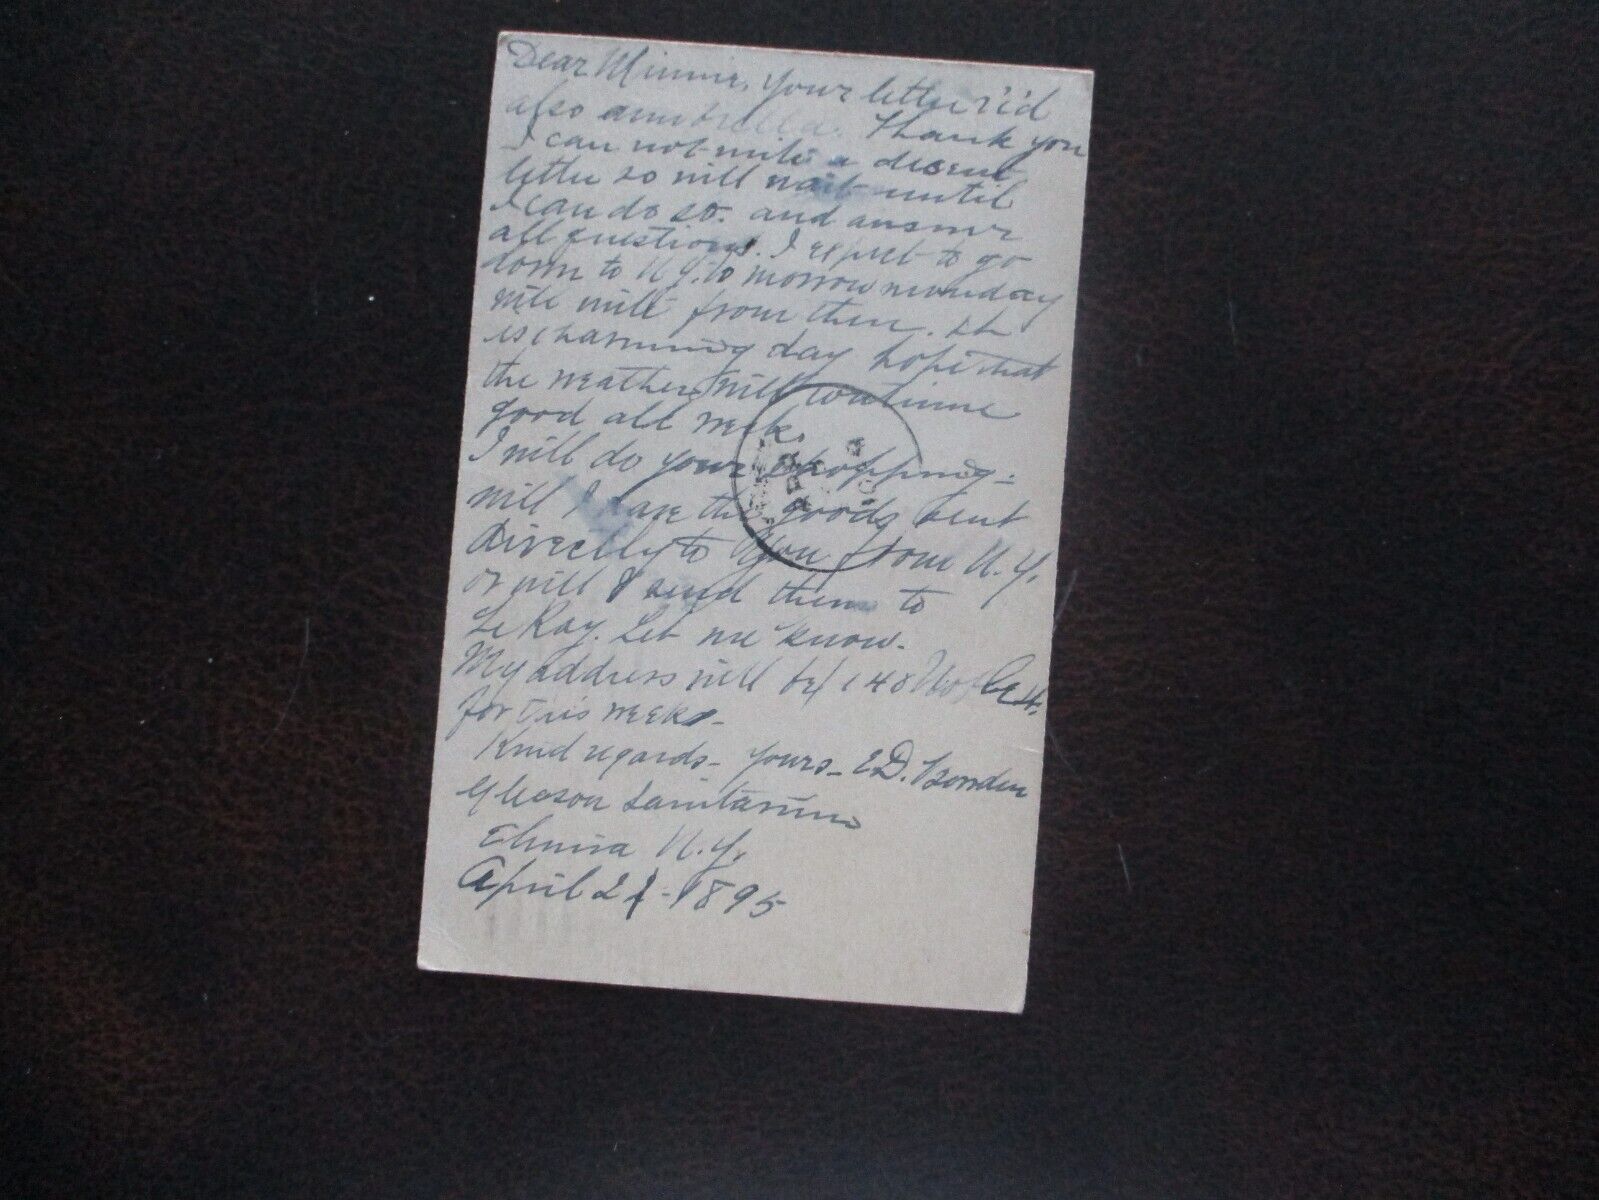 Dear Minnie, Your letter r'c'd
also umbrella. Thank you
I can not write a decent
letter so will wait until
I can do so. and answer
all questions. I expect to go
down to N.Y. to morrow monday
will write from there. It
is charming day hope that
the weather will continue
good all week.
I will do your shopping -
will I have the goods sent
directly to you from N.Y.
or will I send them to
Le Roy. Let me know.
My address will be 148
for this week -
Kind regards - Yours - E D. Borden
Gleason Sanitarium
Elmira N.Y.
April 21 - 1895